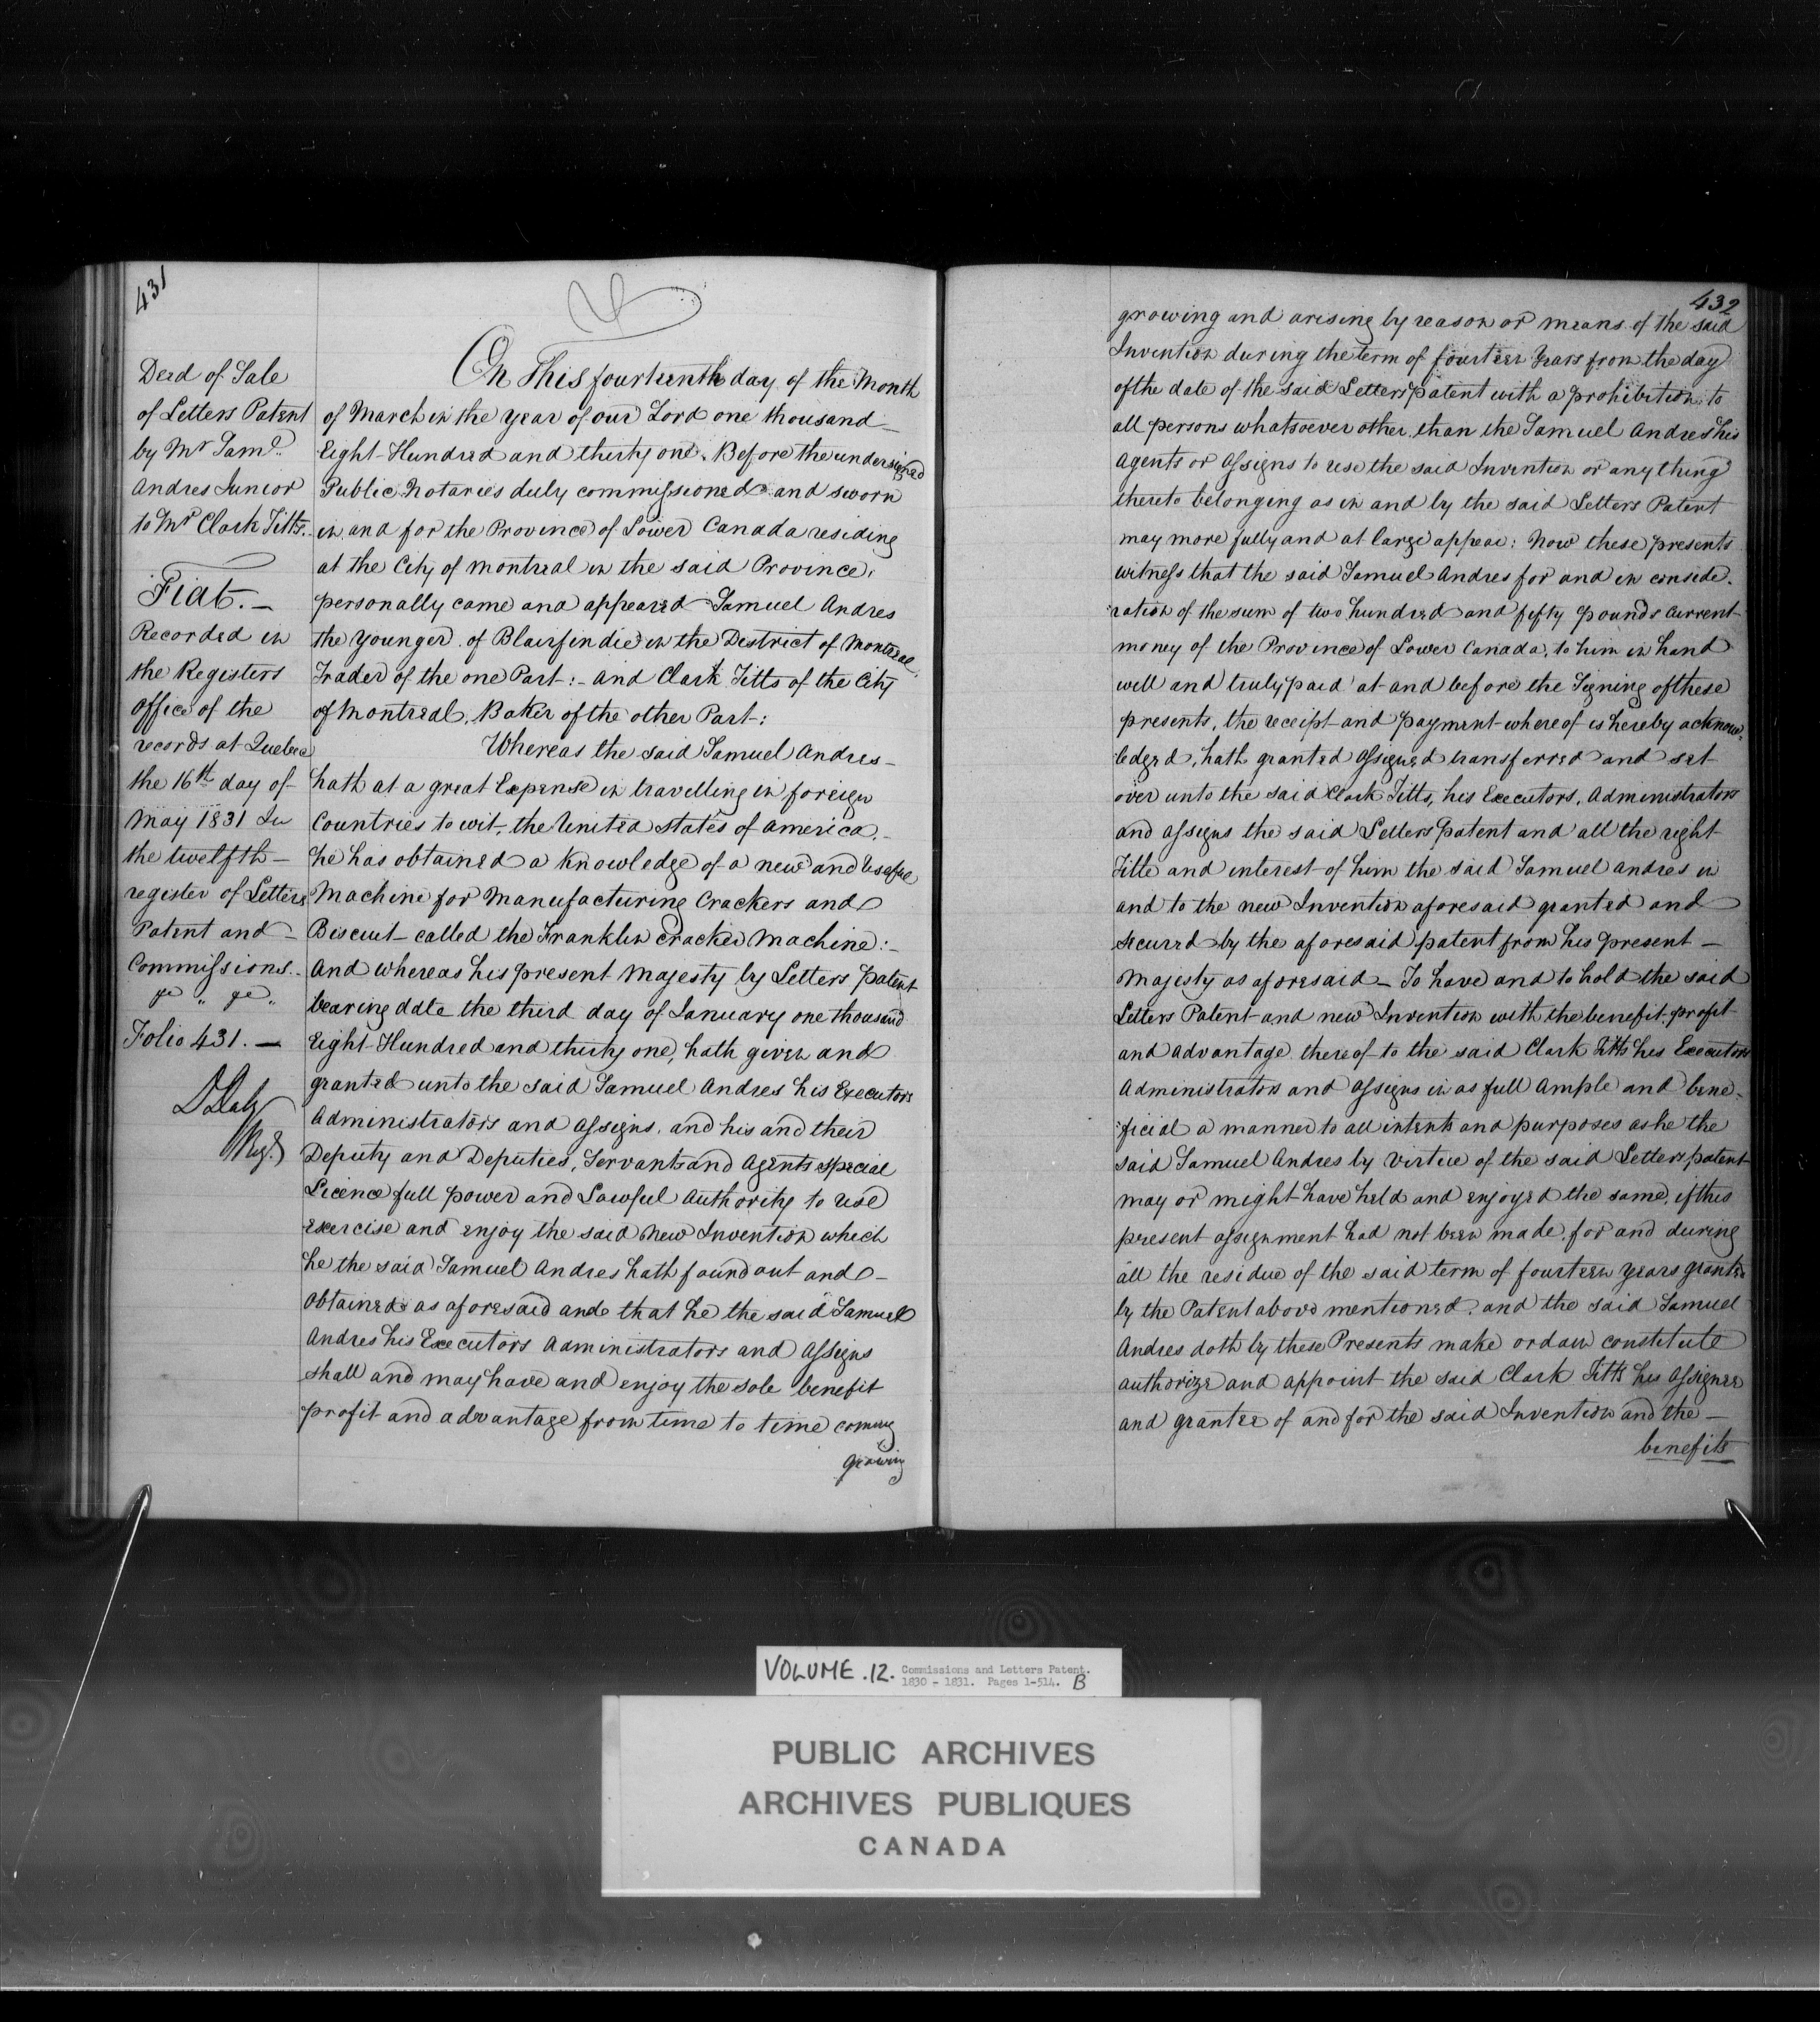 431
Deed of Sale
of Letters Patent
by Mr Saml.
Andres Junior
to Mr Clark Fitts.
Fiat. —
Recorded in
the Registers
Office of the
records at Quebec
the 16th day of
May 1831 In
the twelfth —
register of Letters
Patent and —
Commissions. —
Folio 431. —
DDaly
Regr
On This fourteenth day of the Month
of March in the year of our Lord one thousand —
Eight Hundred and thirty one. Before the undersigned
Public Notaries duly commissioned and sworn
in and for the Province of Lower Canada residing
at the City of Montreal in the said Province,
personally came and appeared Samuel Andres
the younger of Blairfindie in the District of Montreal,
Trader of the one Part: — and Clark Fitts of the City
of Montreal, Baker of the other Part:
Whereas the said Samuel Andres —
hath at a great Expense in travelling in foreign
Countries to wit, the United States of America, —
he has obtained a knowledge of a new and Useful
Machine for Manufacturing Crackers and
Biscuit called the Franklin Cracker Machine: —
And whereas his present Majesty by Letters Patent
bearing date the third day of January one thousand
Eight Hundred and thirty one, hath given and
granted unto the said Samuel Andres his Executors
Administrators and Assigns, and his and their
Deputy and Deputies, Servants and Agents Special
Licence full power and Lawful Authority to use
exercise and enjoy the said New Invention which
he the said Samuel Andres hath found out and —
Obtained as aforesaid and that he the said Samuel
Andres his Executors Administrators and Assigns
shall and may have and enjoy the sole benefit
profit and advantage from time to time coming
growing
432
growing and arising by reason or means of the said
Invention during the term of fourteen Years from the day
of the date of the said Letters patent with a prohibition to
all persons whatsoever other than the Samuel Andres his
Agents or Assigns to use the said Invention or any thing
thereto belonging as in and by the said Letters Patent
may more fully and at large appear: Now these presents
witness that the said Samuel Andres for and in conside-
ration of the sum of two hundred and fifty pounds current
money of the Province of Lower Canada, to him in hand
well and truly paid at and before the Signing of these
presents, the receipt and payment whereof is hereby acknow-
ledged, hath granted assigned transferred and set
over unto the said Clark Fitts, his Executors, Administrators
and assigns the said Letters Patent and all the right
Title and interest of him the said Samuel Andres in
and to the new Invention aforesaid granted and
secured by the aforesaid patent from his present —
Majesty as aforesaid — To have and to hold the said
Letters Patent and new Invention with the benefit, profit
and advantage thereof to the said Clark Fitts his Executors
Administrators and Assigns in as full Ample and bene-
ficial a manner to all intents and purposes as he the
said Samuel Andres by virtue of the said Letters patent
may or might have held and enjoyed the same, if this
present assignment had not been made, for and during
all the residue of the said term of fourteen years granted
by the Patent above mentioned, and the said Samuel
Andres doth by these Presents make ordain constitute
authorize and appoint the said Clark Fitts his Assignee
and grantee of and for the said Invention and the —
benefits
VOLUME .12. Commissions and Letters Patent.
1830 - 1831. Pages 1-514. B
PUBLIC ARCHIVES
ARCHIVES PUBLIQUES
CANADA